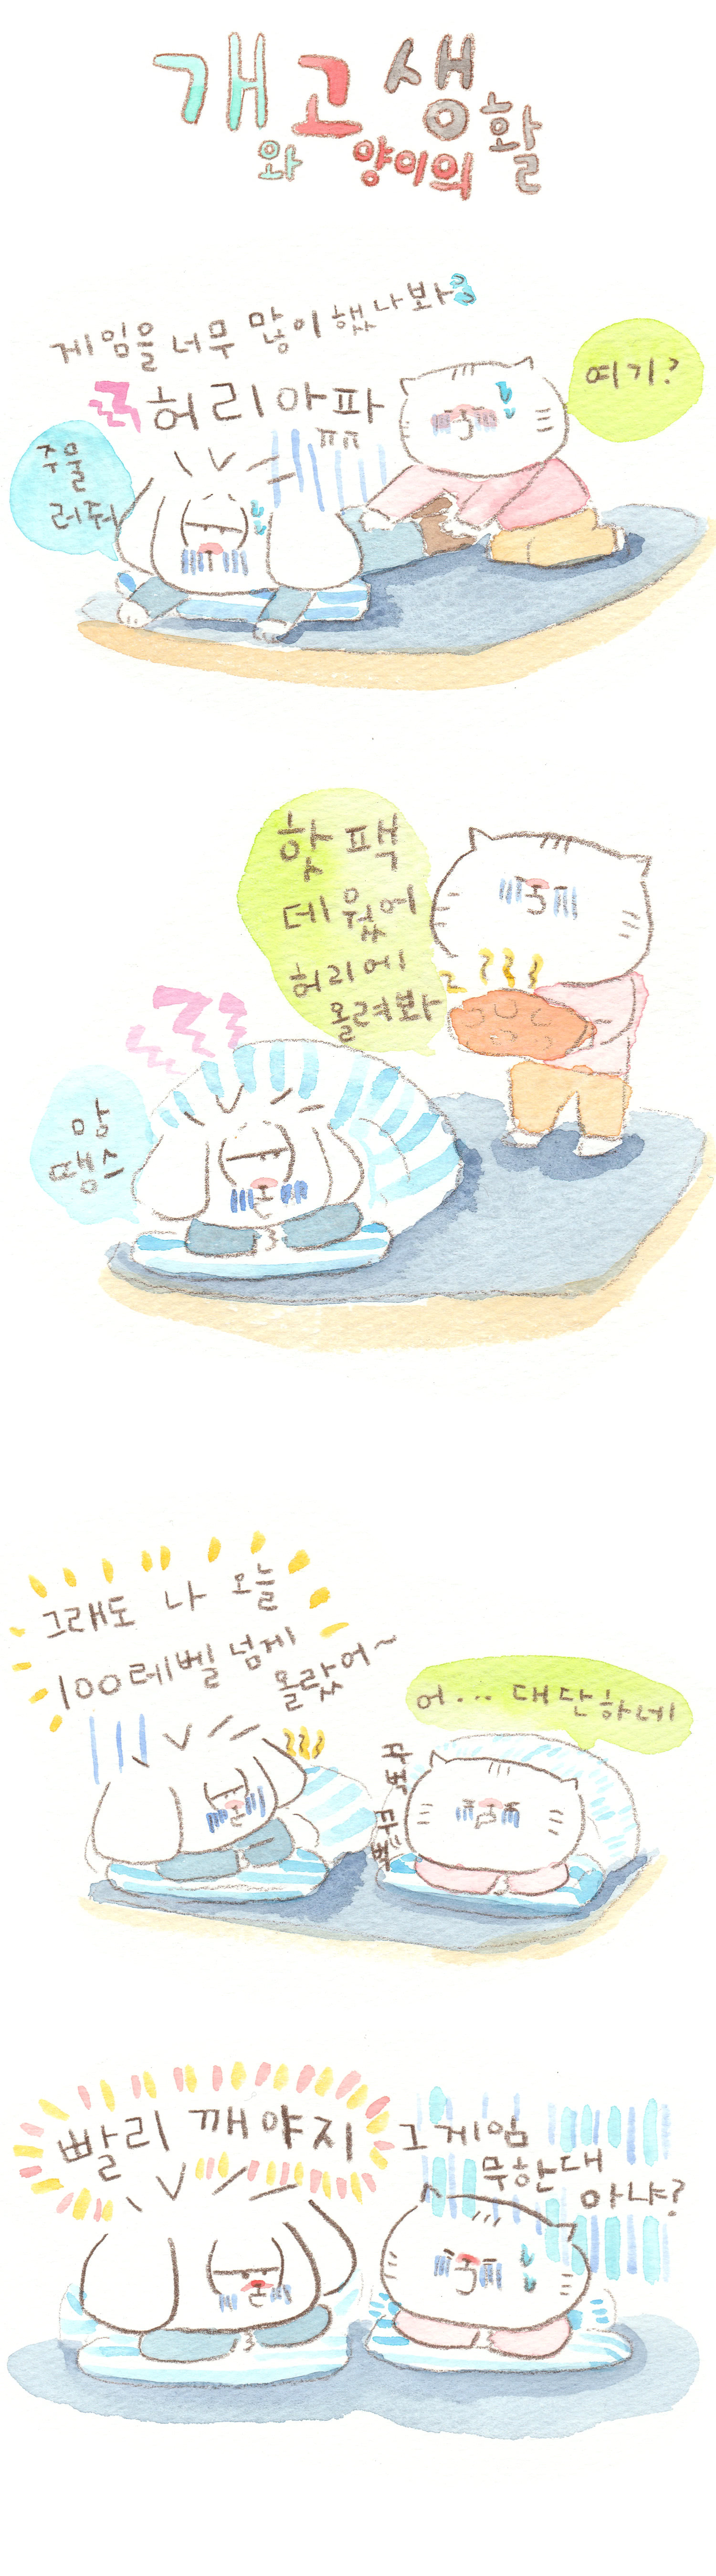 개와 고양이의 생활
게임을 너무 많이 했나봐
허리아파
ㅠㅠ
여기?
주물
러줘
핫팩
데웠어
허리에
올려봐
맘
땡스
그래도 나 오늘
100레벨 넘게
올랐어~
어... 대단하네
빨리 깨야지
그 게임
무한대
아냐?